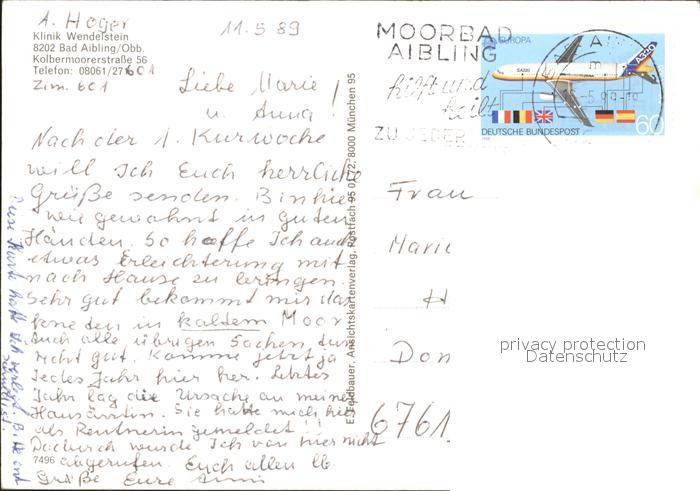 A. Hoger
11.5.89
Klinik Wendelstein
8202 Bad Aibling/Obb.
Kolbermoorerstraße 56
Telefon: 08061/27 601
Zim. 601
Liebe Marie
u. Anna!
Nach der 1. Kurwoche
will Ich Euch herrliche
Grüße senden. Bin hier
wie gewohnt in guten
Händen. So hoffe Ich auch
etwas Erleichterung mit
nach Hause zu bringen.
Sehr gut bekommt mir das
kneten in kaltem Moor
Auch alle übrigen Sachen, tun
recht gut. Komme jetzt ja
Jedes Jahr hier her. Letztes
Jahr lag die Ursache an meiner
Hausärztin. Sie hatte mich hier
als Rentnerin gemeldet!!
Dadurch wurde Ich von hier nicht
abgerufen. Euch allen lb.
Grüße Eure
7496
E. Feldbauer, Ansichtskartenverlag, Postfach 95 01 72, 8000 München 95
MOORBAD
AIBLING
hilft und
heilt
ZU JEDER
EUROPA
A320
DEUTSCHE BUNDESPOST
60
Frau
Marie
H
Don
6761
privacy protection
Datenschutz